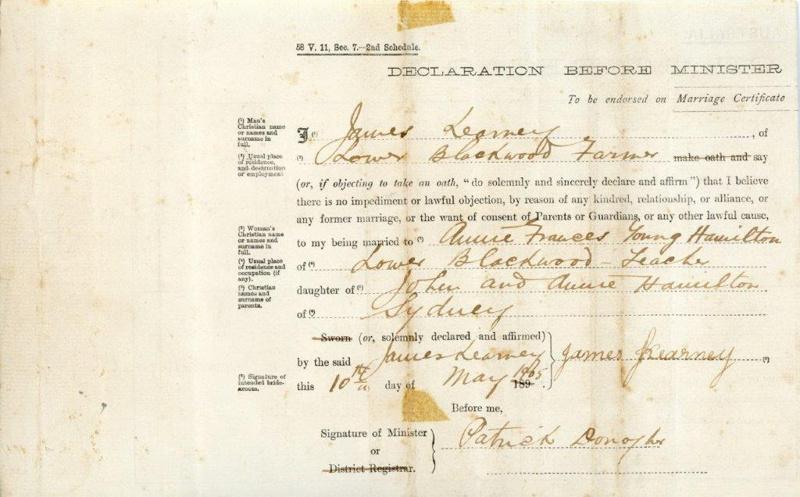 58 V. 11, Sec. 7.—2nd Schedule.
DECLARATION BEFORE MINISTER
To be endorsed on Marriage Certificate
(¹) Man's Christian name or names and surname in full.
I (¹) James Kearney, of
(²) Usual place of residence, and destination or employment
(²) Lower Blackwood Farmer make oath and say
(or, if objecting to take an oath, "do solemnly and sincerely declare and affirm") that I believe
there is no impediment or lawful objection, by reason of any kindred, relationship, or alliance, or
any former marriage, or the want of consent of Parents or Guardians, or any other lawful cause,
(³) Woman's Christian name or names and surname in full.
to my being married to (³) Annie Frances Young Hamilton
(⁴) Usual place of residence and occupation (if any).
of (⁴) Lower Blackwood - Teacher
(⁵) Christian names and surname of parents.
daughter of (⁵) John and Annie Hamilton
of Sydney
Sworn (or, solemnly declared and affirmed)
by the said James Kearney James Kearney
(⁶) Signature of intended bridegroom.
this 10th day of May 189
Before me,
Signature of Minister Patrick Donagher
or
District Registrar.